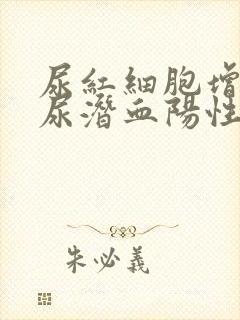 尿紅細胞增
尿潛血陽性
朱必義